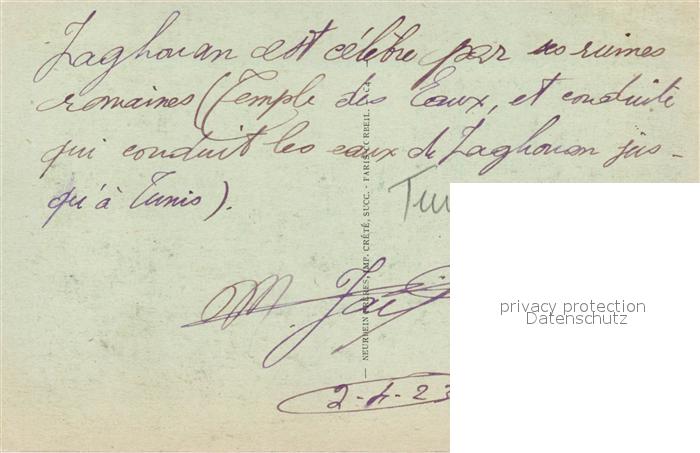 Zaghouan est célèbre par ses ruines
romaines (Temple des Eaux, et conduite
qui conduit les eaux de Zaghouan jus-
qu'à Tunis).
Tu
NEURDEIN FRÈRES, IMP. CRÉTÉ, SUCC. - PARIS-CORBEIL.
M.
2-4-23
privacy protection
Datenschutz